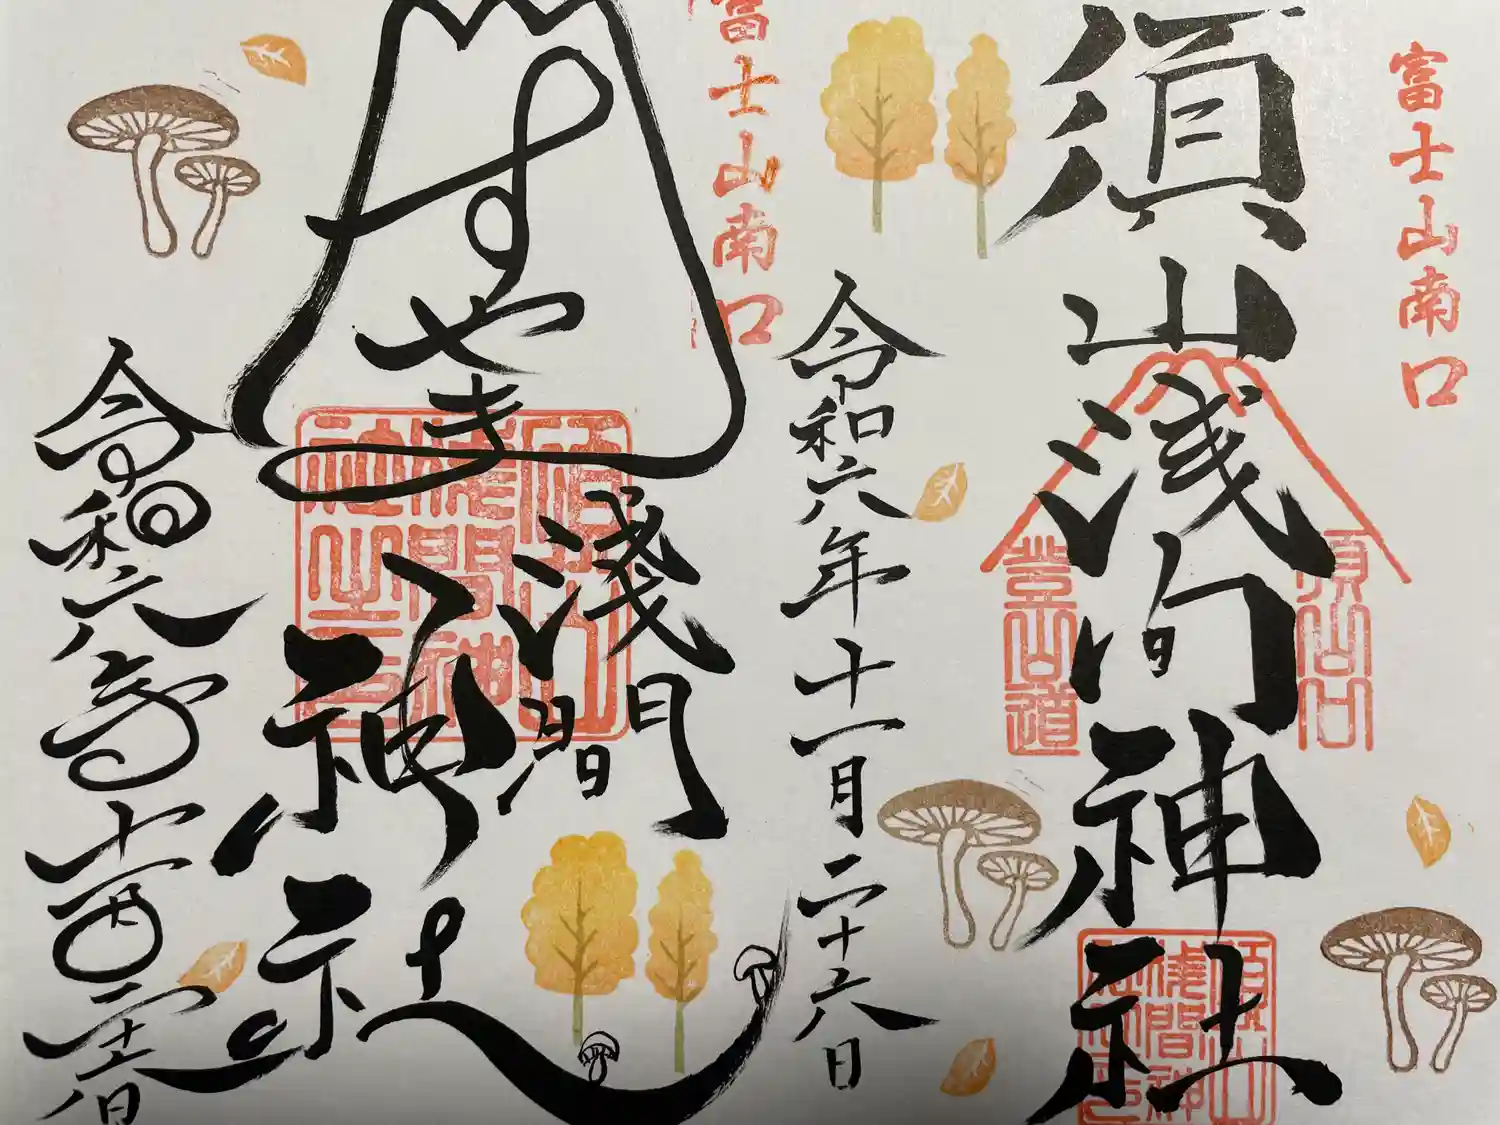 富士山南口
須山浅间神社
須山口
登山道
須山浅間神社之印
令和六年十一月二十六日
富士山南口
すやま
淺間
神社
須山浅間神社之印
令和六年十一月二十六日